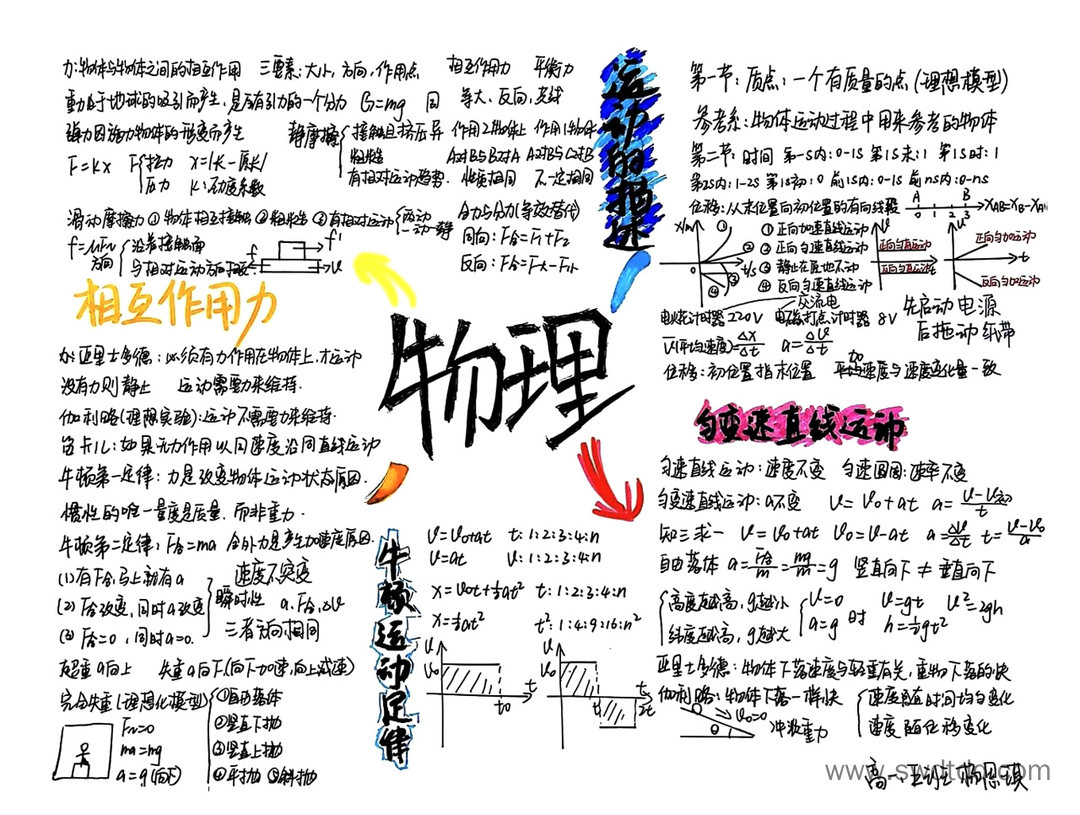 物理
相互作用力
力:物体与物体之间的相互作用 三要素:大小,方向,作用点
重力由于地球的吸引而产生,是万有引力的一个分力 G=mg
弹力因施力物体的形变而产生
F=kx F{拉力 压力 x=|K-原长| K:劲度系数
静摩擦{接触且挤压
粗糙
有相对运动趋势
相互作用力 平衡力
同 等大,反向,共线
异 作用2物体上 作用1物体
A对B与B对A A对B与C对B
性质相同 不一定相同
滑动摩擦力①物体相互接触②粗糙③有相对运动{两动 一动一静
f=μFN
方向{沿着接触面
与相对运动方向相反
f f' v
合力与分力(等效替代)
同向:F合=F1+F2
反向:F合=F大-F小
运动的描述
第一节:质点:一个有质量的点(理想模型)
参考系:物体运动过程中用来参考的物体
第二节:时间 第一S内:0-1S 第1S末:1 第1S时:1
第2S内:1-2S 第1S初:0 前1S内:0-1S 前nS内:0-nS
位移:从末位置向初位置的有向线段 A B 0 1 2 3 XAB=XB-XA
x/m t/s ① ② ③ ④
①正向加速直线运动
②正向匀速直线运动
③静止在原地不动
④反向匀速直线运动
V 正向匀速运动 反向匀速运动
V 正向匀加运动 t 反向匀加运动
电火花计时器220V 交流电 电磁打点计时器 8V
先启动电源
后拖动纸带
V(平均速度)=Δx/Δt a=ΔV/Δt
位移:初位置指末位置 加速度与速度变化量一致
匀变速直线运动
匀速直线运动:速度不变 匀速圆周:速率不变
匀变速直线运动:a不变 V=V0+at a=V-V初/t
知三求一 V=V0+at V0=V-at a=ΔV/Δt t=V-V0/a
自由落体 a=F合/m=mg/m=g 竖直向下≠垂直向下
{高度越高,g越小
纬度越高,g越大
{V=0 a=g 时 V=gt V²=2gh
h=½gt²
亚里士多德:物体下落速度与轻重有关,重物下落的快
伽利略:物体下落一样快 {速度随时间均匀变化
速度随位移变化
V0=0 θ 冲散重力
高一.五班 杨思琪
牛顿运动定律
力:亚里士多德:必须有力作用在物体上,才运动
没有力则静止 运动需要力来维持.
伽利略(理想实验):运动不需要力来维持.
笛卡儿:如果无力作用以同速度沿同直线运动
牛顿第一定律:力是改变物体运动状态原因.
惯性的唯一量度是质量,而非重力.
牛顿第二定律:F合=ma 合外力是产生加速度原因.
(1)有F合,马上就有a
(2)F合改变,同时a改变
(3)F合=0,同时a=0.
}瞬时性 速度不突变
a.F合.ΔV
三者方向相同
超重a向上 失重a向下(向下加速,向上减速)
完全失重(理想化模型){①自由落体
②竖直下抛
③竖直上抛
④平抛⑤斜抛
FN=0
ma=mg
a=g(向下)
V=V0+at t:1:2:3:4:n
V=at V:1:2:3:4:n
x=V0t+½at² t:1:2:3:4:n
x=½at² t²:1:4:9:16:n²
V V0 t t0
V V0 t t1 2t
www.swdtdq.com